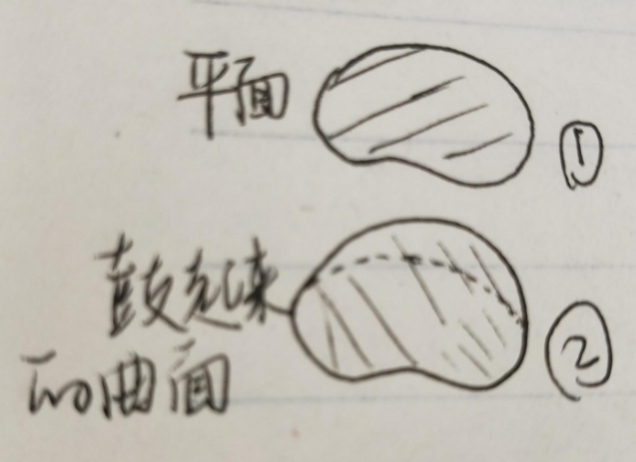 平面
①
鼓起来
的曲面
②